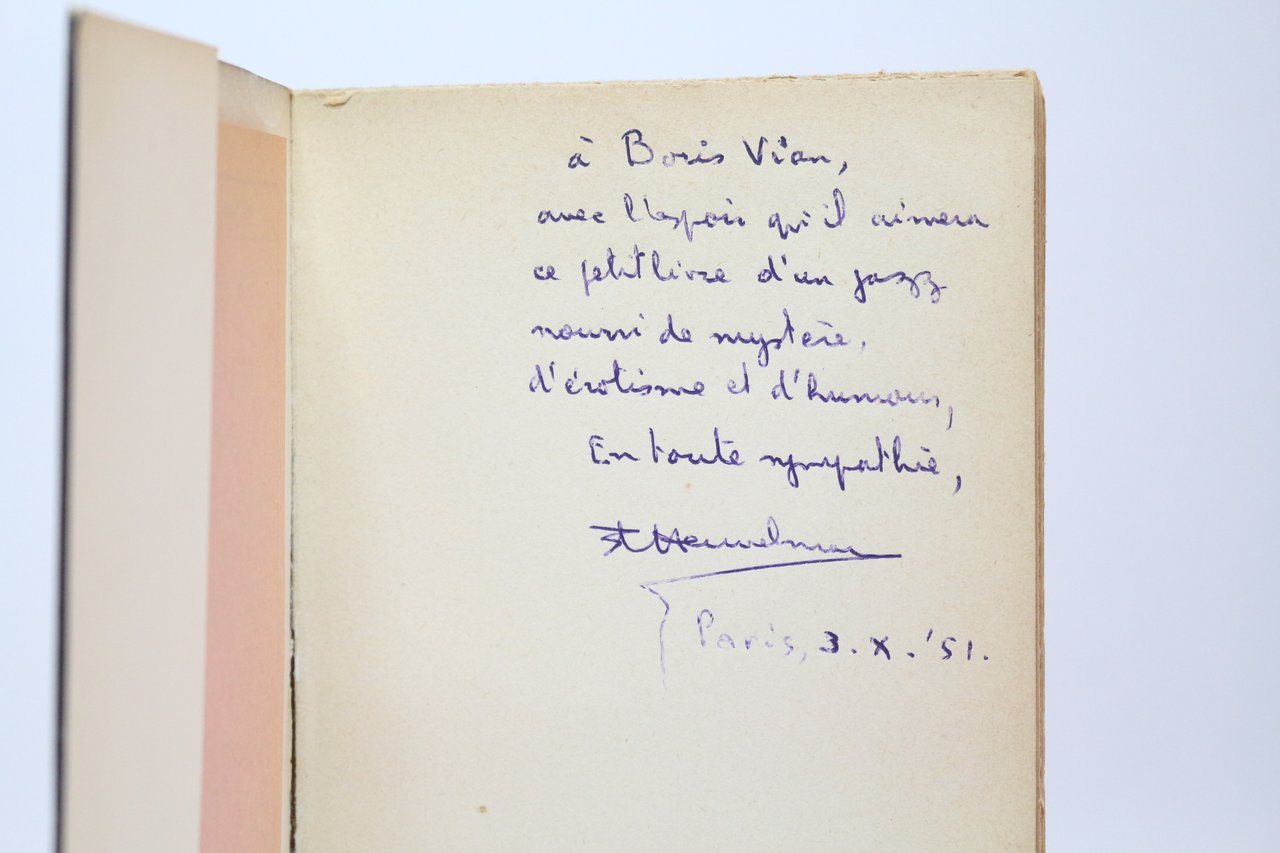 à Boris Vian,
avec l'espoir qu'il aimera
ce petit livre d'un jazz
nourri de mystère,
d'érotisme et d'humour,
En toute sympathie,
Heuvelmans
Paris, 3. X. '51.